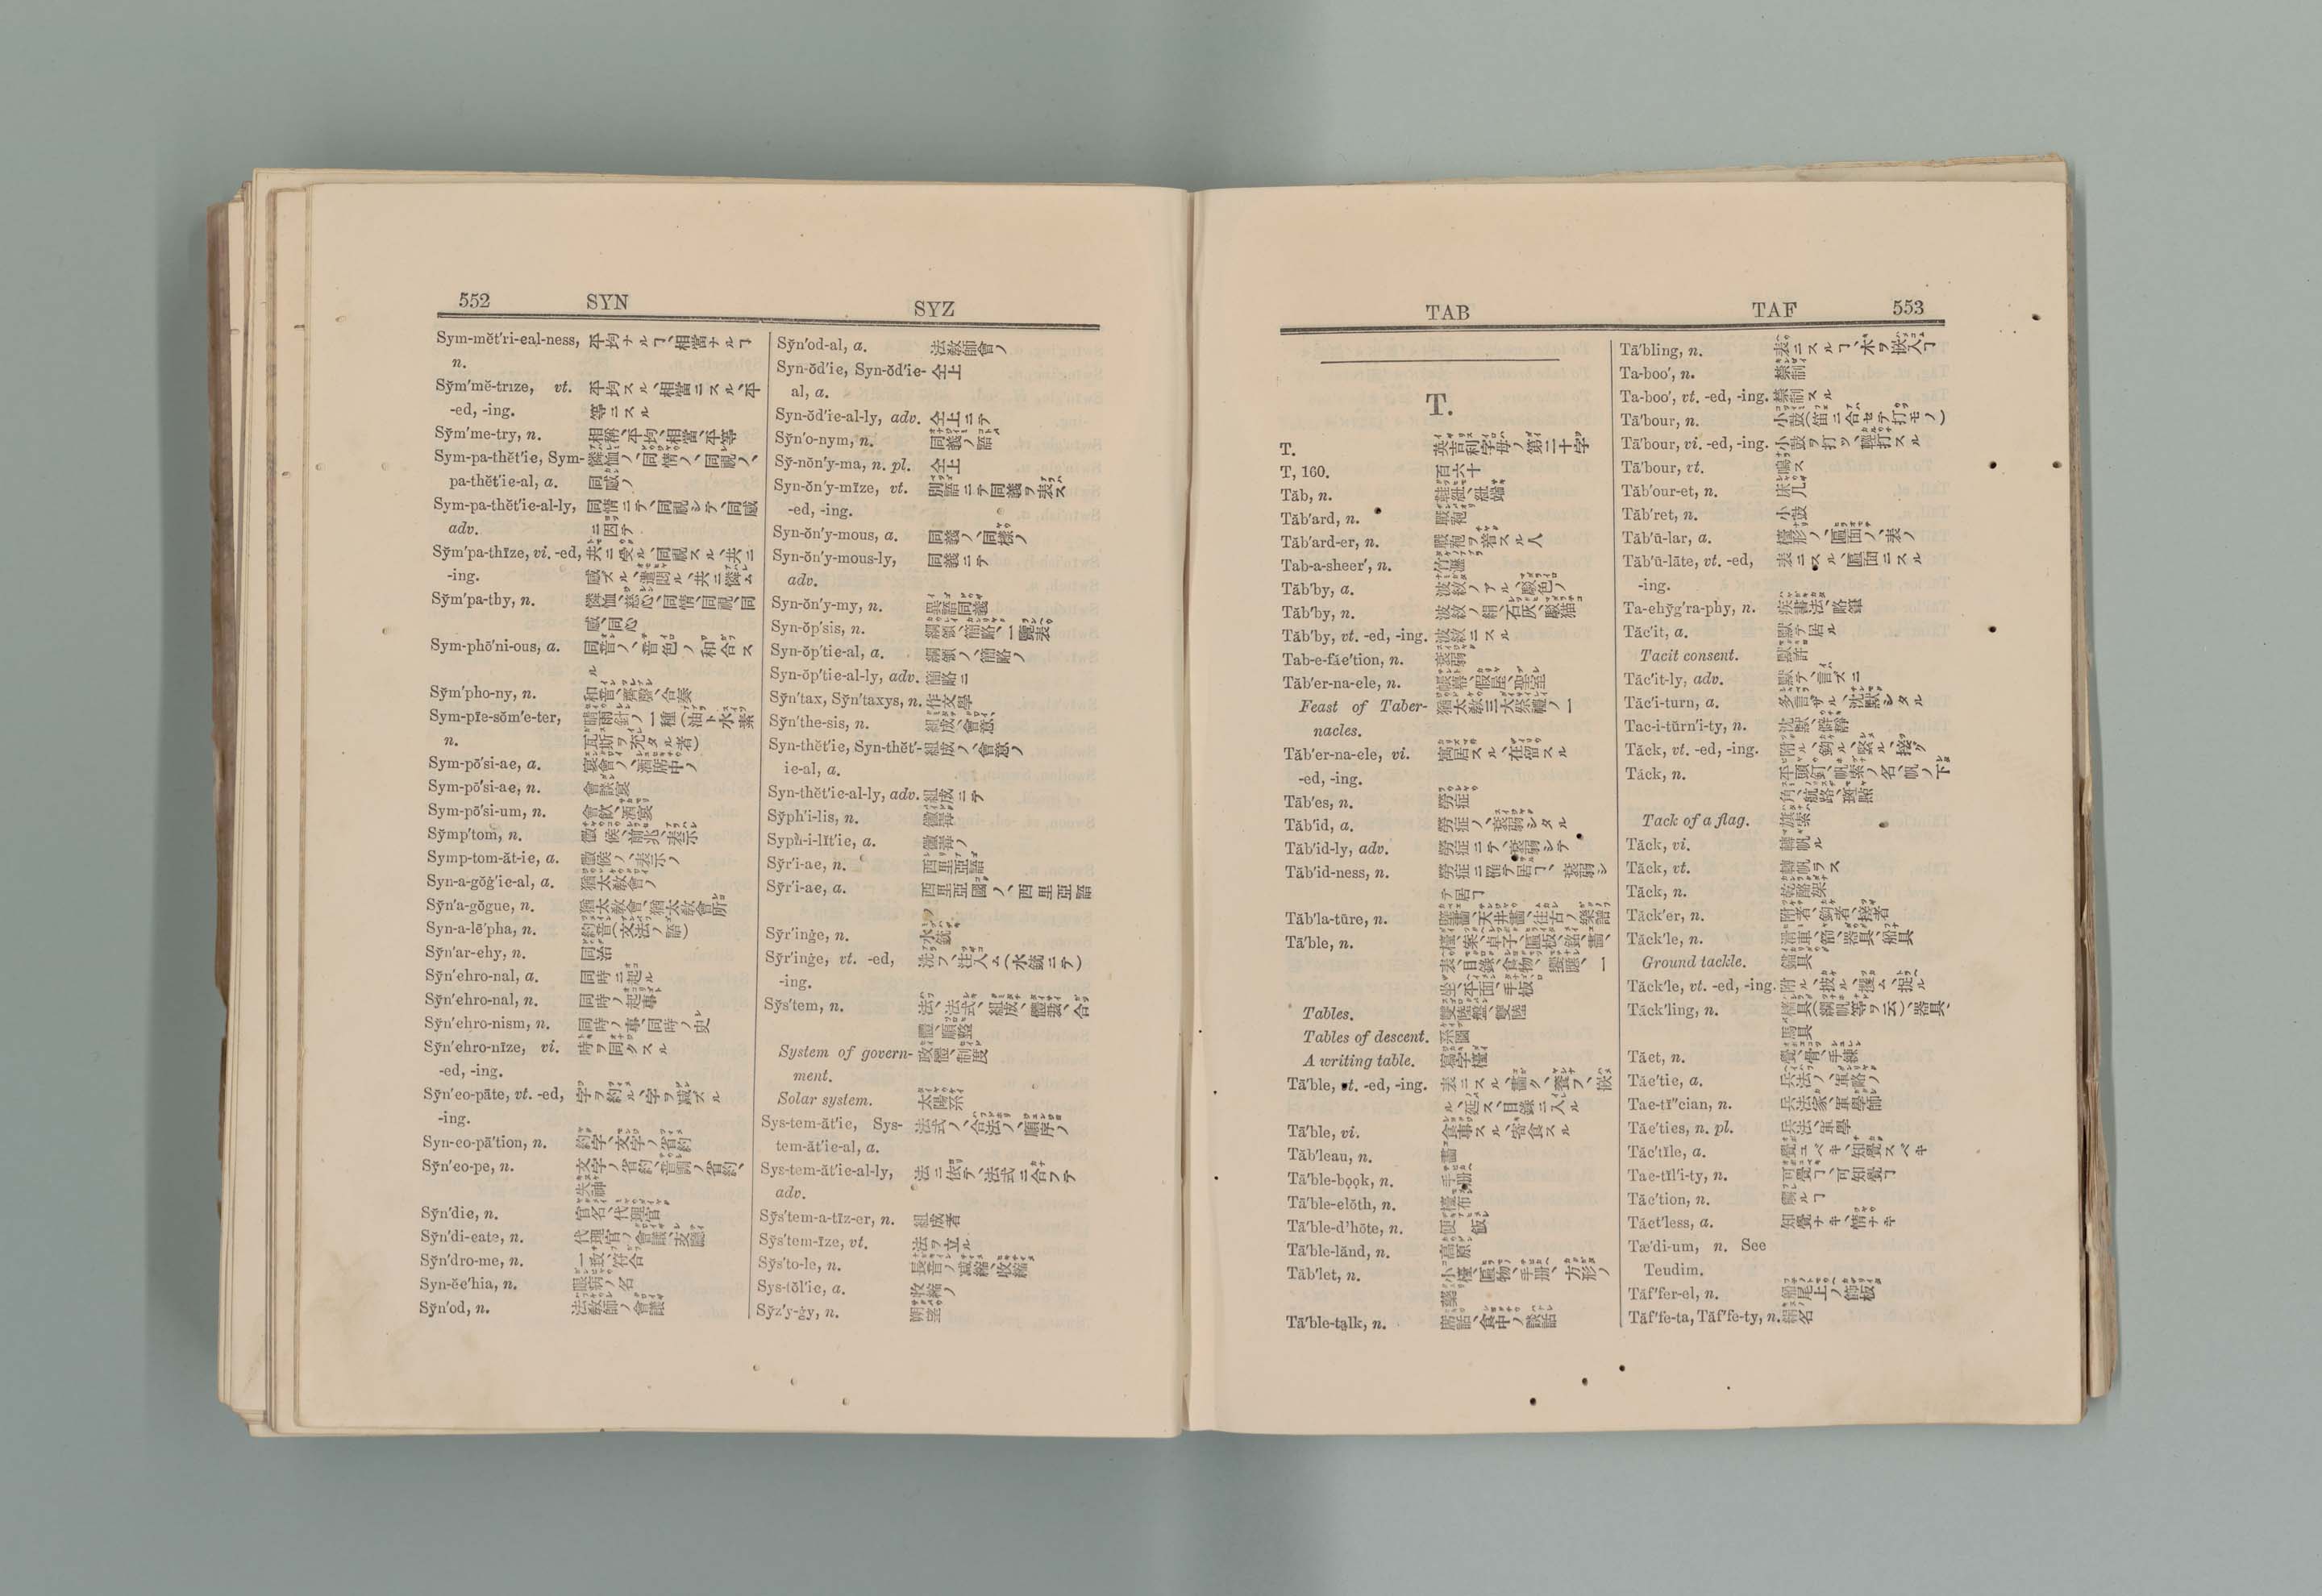 552 SYN SYZ
Sym-mĕt′ri-eal-ness, 平均ナルヿ、相當ナルヿ
n.
Sўm′mĕ-trīze, vt. 平均スル、相當ニスル、平
-ed, -ing. 等ニスル
Sўm′me-try, n. 相稱、平均、相當、平等
Sym-pa-thĕt′ie, Sym- 憐恤ノ、同情ノ、同視ノ、
pa-thĕt′ie-al, a. 同感ノ
Sym-pa-thĕt′ie-al-ly, 同情ニテ、同視シテ、同感
adv. ニ因テ
Sўm′pa-thīze, vi. -ed, 共ニ受ル、同視スル、共ニ
-ing. 感ズル、共ニ憐ム
Sўm′pa-thy, n. 憐恤、慈心、同情、同視、同
感、同心
Sym-phō′ni-ous, a. 同音ノ、音色ノ和合ス
ル
Sўm′pho-ny, n. 和音、齊發、合奏
Sym-pīe-sŏm′e-ter, 晴雨針ノ一種(油ト水素
n. 瓦斯ヲ充タル者)
Sym-pō′si-ae, a. 宴會ノ、酒席中ノ
Sym-pō′si-ae, n. 會談宴
Sym-pō′si-um, n. 會飲、酒宴
Sўmp′tom, n. 徵候、前兆、表示
Symp-tom-ăt-ie, a. 徵候ノ、表示ノ
Syn-a-gŏġ′ie-al, a. 猶太敎會ノ
Sўn′a-gŏgue, n. 猶太敎會、猶太敎會所
Syn-a-lē′pha, n. 約音(文法ノ語)
Sўn′ar-ehy, n. 同治
Sўn′ehro-nal, a. 同時ニ起ル
Sўn′ehro-nal, n. 同時ノ起事
Sўn′ehro-nism, n. 同時ノ事、同時ノ史
Sўn′ehro-nīze, vi. 時ヲ同クスル
-ed, -ing.
Sўn′eo-pāte, vt. -ed, 字ヲ約ル、字ヲ減ズル
-ing.
Syn-eo-pā′tion, n. 約字、文字ノ省約
Sўn′eo-pe, n. 文字ノ省約、音調ノ省約、
失神
Sўn′die, n. 官名、代理官
Sўn′di-eate, n. 代理官ノ會議、支廳
Sўn′dro-me, n. 一致、符合
Syn-ĕe′hia, n. 眼病ノ名
Sўn′od, n. 法敎師ノ會議
Sўn′od-al, a. 法敎師會ノ
Syn-ŏd′ie, Syn-ŏd′ie- 仝上
al, a.
Syn-ŏd′ie-al-ly, adv. 仝上ニテ
Sўn′o-nym, n. 同義ノ語
Sў-nŏn′y-ma, n. pl. 仝上
Syn-ŏn′y-mīze, vt. 別語ニテ同義ヲ表ス
-ed, -ing.
Syn-ŏn′y-mous, a. 同義ノ、同樣ノ
Syn-ŏn′y-mous-ly, 同義ニテ
adv.
Syn-ŏn′y-my, n. 異語同義
Syn-ŏp′sis, n. 綱領、節略、一覽表
Syn-ŏp′tie-al, a. 綱領ノ、簡略ノ
Syn-ŏp′tie-al-ly, adv. 簡略ニ
Sўn′tax, Sўn′taxys, n. 作文學
Sўn′the-sis, n. 組成、會意
Syn-thĕt′ie, Syn-thĕt′- 組成ノ、會意ノ
ie-al, a.
Syn-thĕt′ie-al-ly, adv. 組成ニテ
Sўph′i-lis, n. 黴毒
Syph-i-lĭt′ie, a. 黴毒ノ
Sўr′i-ae, n. 西里亞語
Sўr′i-ae, a. 西里亞國ノ、西里亞語
ノ
Sўr′inġe, n. 水銃
Sўr′inġe, vt. -ed, 洗フ、注入ム(水銃ニテ)
-ing.
Sўs′tem, n. 法、法式、組成、體裁、合
體、順整
System of govern- 政體、制度
ment.
Solar system. 太陽系
Sys-tem-ăt′ie, Sys- 法式ノ、合法ノ、順序ノ
tem-ăt′ie-al, a.
Sys-tem-ăt′ie-al-ly, 法ニ依テ、法式ニ合フテ
adv.
Sўs′tem-a-tīz-er, n. 組成者
Sўs′tem-īze, vt. 法ヲ立ル
Sўs′to-le, n. 長音ノ減縮、收縮
Sys-tŏl′ie, a. 收縮ノ
Sўz′y-ġy, n. 朔望
TAB TAF 553
T.
T. 英吉利字母ノ第二十字
T, 160. 百六十
Tăb, n. 鞋紐、紐端
Tăb′ard, n. 短袍
Tăb′ard-er, n. 短袍ヲ着スル人
Tab-a-sheer′, n. 竹瀝
Tăb′by, a. 波紋ノアル、駁色ノ
Tăb′by, n. 波紋ノ絹、石灰、駁猫
Tăb′by, vt. -ed, -ing. 波紋ニスル
Tab-e-făe′tion, n. 衰弱
Tăb′er-na-ele, n. 帳幕、假屋、聖室
Feast of Taber- 猶太敎三大祭禮ノ一
nacles.
Tăb′er-na-ele, vi. 寓居スル、在留スル
-ed, -ing.
Tāb′es, n. 勞症
Tăb′id, a. 勞症ノ、衰弱シタル
Tăb′id-ly, adv. 勞症ニテ、衰弱シテ
Tăb′id-ness, n. 勞症ニ罹テ居ルヿ、衰弱シ
テ居ヿ
Tăb′la-tūre, n. 壁畫、天井畫、往古ノ樂譜
Tā′ble, n. 檯、案、卓子、匾板、銘、畵、
表、目錄、食物、饗應、一
坐、平面、手板
Tables. 雙陸盤、雙陸
Tables of descent. 系圖
A writing table. 寫字檯
Tā′ble, vt. -ed, -ing. 表ニスル、畵ク、養フ、嵌
ル、延ス、目錄ニ入ル
Tā′ble, vi. 食事スル、寄食スル
Tăb′leau, n. 畵
Tā′ble-bo͝ok, n. 手册
Tā′ble-elŏth, n. 檯布
Tā′ble-d'hōte, n. 便飯
Tā′ble-lănd, n. 高原
Tăb′let, n. 小檯、匾物、手册、方形ノ
藥
Tā′ble-ta̤lk, n. 席話、食中ノ談話
Tā′bling, n. 表ニスルヿ、木ヲ嵌入ヿ
Ta-boo′, n. 禁制
Ta-boo′, vt. -ed, -ing. 禁制スル
Tā′bour, n. 小鼓(笛ニ合セテ打モノ)
Tā′bour, vi. -ed, -ing. 小鼓ヲ打ツ、輕打スル
Tā′bour, vt. 鳴ス
Tăb′our-et, n. 床几
Tăb′ret, n. 小鼓
Tăb′ū-lar, a. 檯形ノ、匾面ノ、表ノ
Tăb′ū-lāte, vt. -ed, 表ニスル、匾面ニスル
-ing.
Ta-ehўg′ra-phy, n. 疾書法、略筆
Tăc′it, a. 默テ居ル
Tacit consent. 默許
Tăc′it-ly, adv. 默テ、言ズニ
Tăc′i-turn, a. 多言ザル、沈默シタル
Tac-i-tūrn′i-ty, n. 沈默、靜
Tăck, vt. -ed, -ing. 附ル、鉤ル、緊ル、接グ
Tăck, n. 平頭釘、帆索ノ名、帆ノ下
角、航路、斑點
Tack of a flag. 旗索
Tăck, vi. 轉帆ル
Tăck, vt. 轉帆ラス
Tăck, n. 乾酪架
Tăck′er, n. 附者、鉤者、接者
Tăck′le, n. 滑車、箭、器具、船具
Ground tackle. 錨具
Tăck′le, vt. -ed, -ing. 附ル、捉ル
Tăck′ling, n. 檣具(綱帆等ヲ云)、器具、
馬具
Tăet, n. 覺、骨、手練
Tăe′tie, a. 兵法ノ、軍略ノ
Tae-tĭ″cian, n. 兵法家、軍學師
Tăe′ties, n. pl. 兵法、軍學
Tăc′tĭle, a. 覺ユベキ、知覺スベキ
Tae-tĭl′i-ty, n. 可覺ヿ、可知覺ヿ
Tăe′tion, n. 觸ルヿ
Tăet′less, a. 知覺ナキ、情ナキ
Tæ′di-um, n. See
Teudim.
Tăf′fer-el, n. 船尾上ノ飾板
Tăf′fe-ta, Tăf′fe-ty, n. 絹名